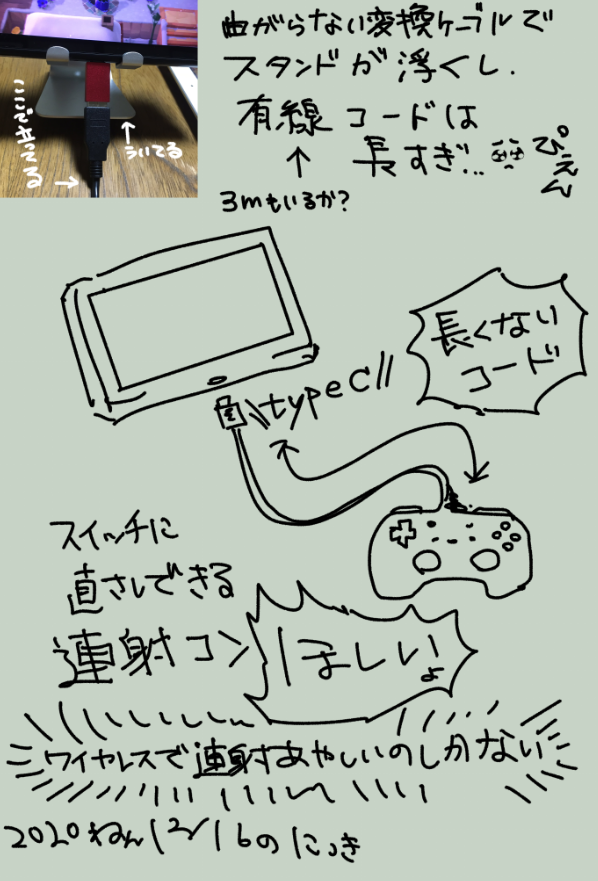 曲がらない変換ケーブルで
スタンドが浮くし.
有線コードは
長すぎ...
ぴえん
↑
3mもいるか?
ここで立ってる
→
↑
ういてる
typeC
長くない
コード
スイッチに
直さしできる
連射コン
ほしいよ
ワイヤレスで連射あやしいのしかない
2020ねん12/16のにっき